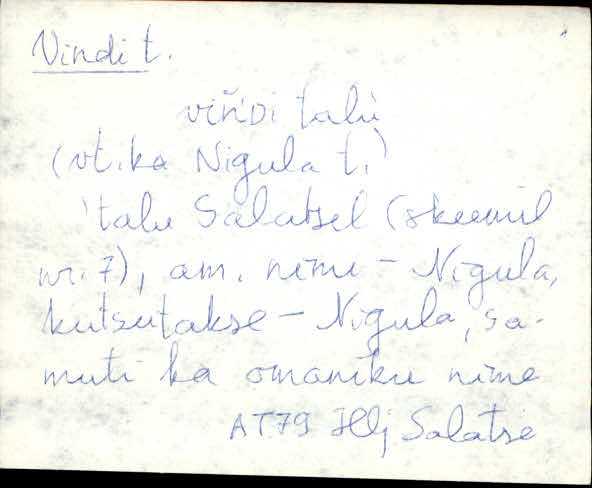 Vindi t.
viňDi talù
(vt. ka Nigula t.)
'talu Salatsel (skeemil
nr. 7), am. nimi - Nigula,
kutsutakse - Nigula, sa-
muti ka omaniku nime
AT79 Hlj Salatse